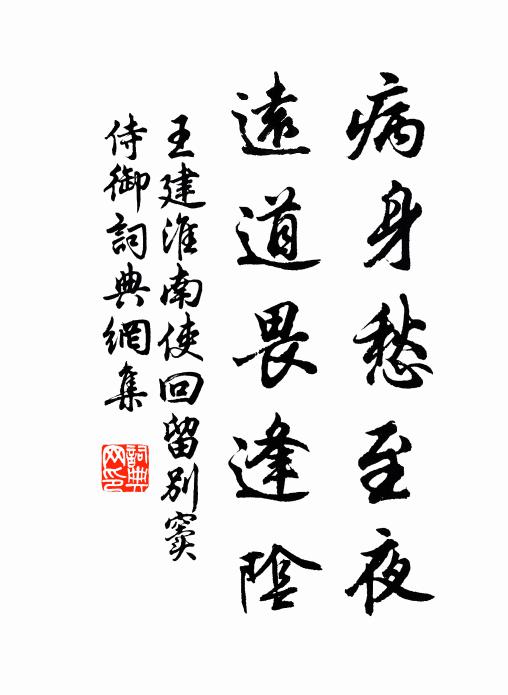 病身愁至夜
遠道畏逢陰
王建淮南使回留別竇
侍御詞典網集
詞典
网印